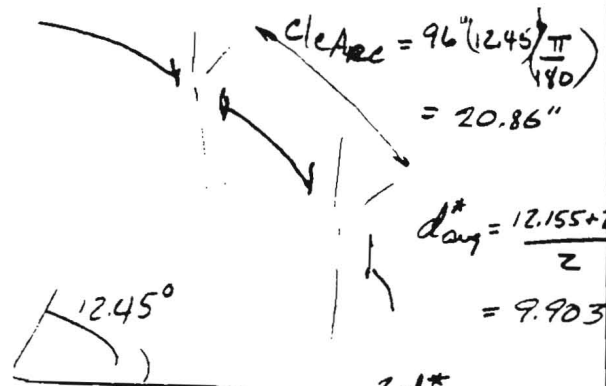 c/c ARC = 96"(12.45)(π/180)
= 20.86"
d*avg = 12.155+2
= 9.903
12.45°
d*